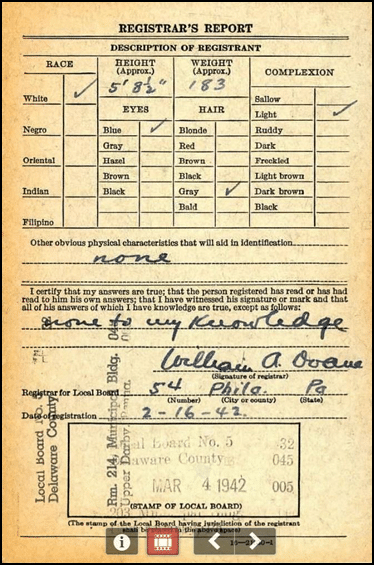 REGISTRAR'S REPORT
DESCRIPTION OF REGISTRANT
RACE
HEIGHT (Approx.)
WEIGHT (Approx.)
COMPLEXION
5' 8½"
183
White ✓
EYES
HAIR
Sallow
Light ✓
Negro
Blue ✓
Blonde
Ruddy
Gray
Red
Dark
Oriental
Hazel
Brown
Freckled
Brown
Black
Light brown
Indian
Black
Gray ✓
Dark brown
Bald
Black
Filipino
Other obvious physical characteristics that will aid in identification
none
I certify that my answers are true; that the person registered has read or has had
read to him his own answers; that I have witnessed his signature or mark and that
all of his answers of which I have knowledge are true, except as follows:
none to my knowledge
William A. Doane
(Signature of registrar)
Registrar for Local Board 54 Phila. Pa
(Number) (City or county) (State)
Date of registration 2-16-42
Local Board No. 5
Delaware County
Rm. 214, Municipal Bldg.
Upper Darby, Penna.
Local Board No. 5 32
Delaware County 045
MAR 4 1942 005
(STAMP OF LOCAL BOARD)
(The stamp of the Local Board having jurisdiction of the registrant
shall be placed in the above space)